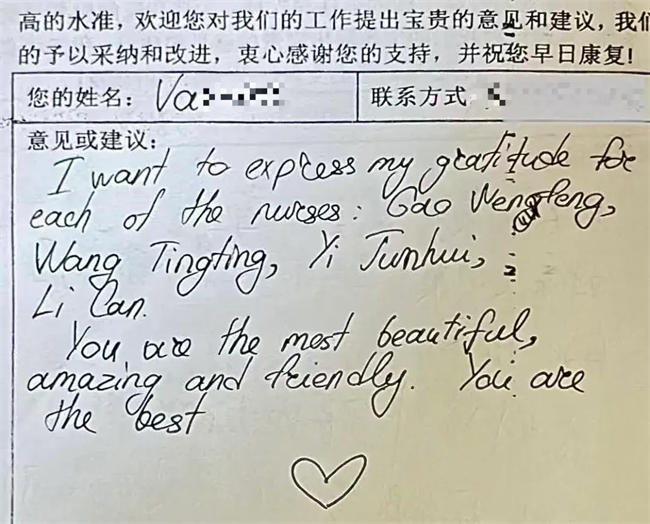 高的水准，欢迎您对我们的工作提出宝贵的意见和建议，我们
的予以采纳和改进，衷心感谢您的支持，并祝您早日康复！
您的姓名： Va
联系方式
意见或建议：
I want to express my gratitude for
each of the nurses: Gao Wengfeng,
Wang Tingting, Yi Junhui,
Li Can.
You are the most beautiful,
amazing and friendly. You are
the best